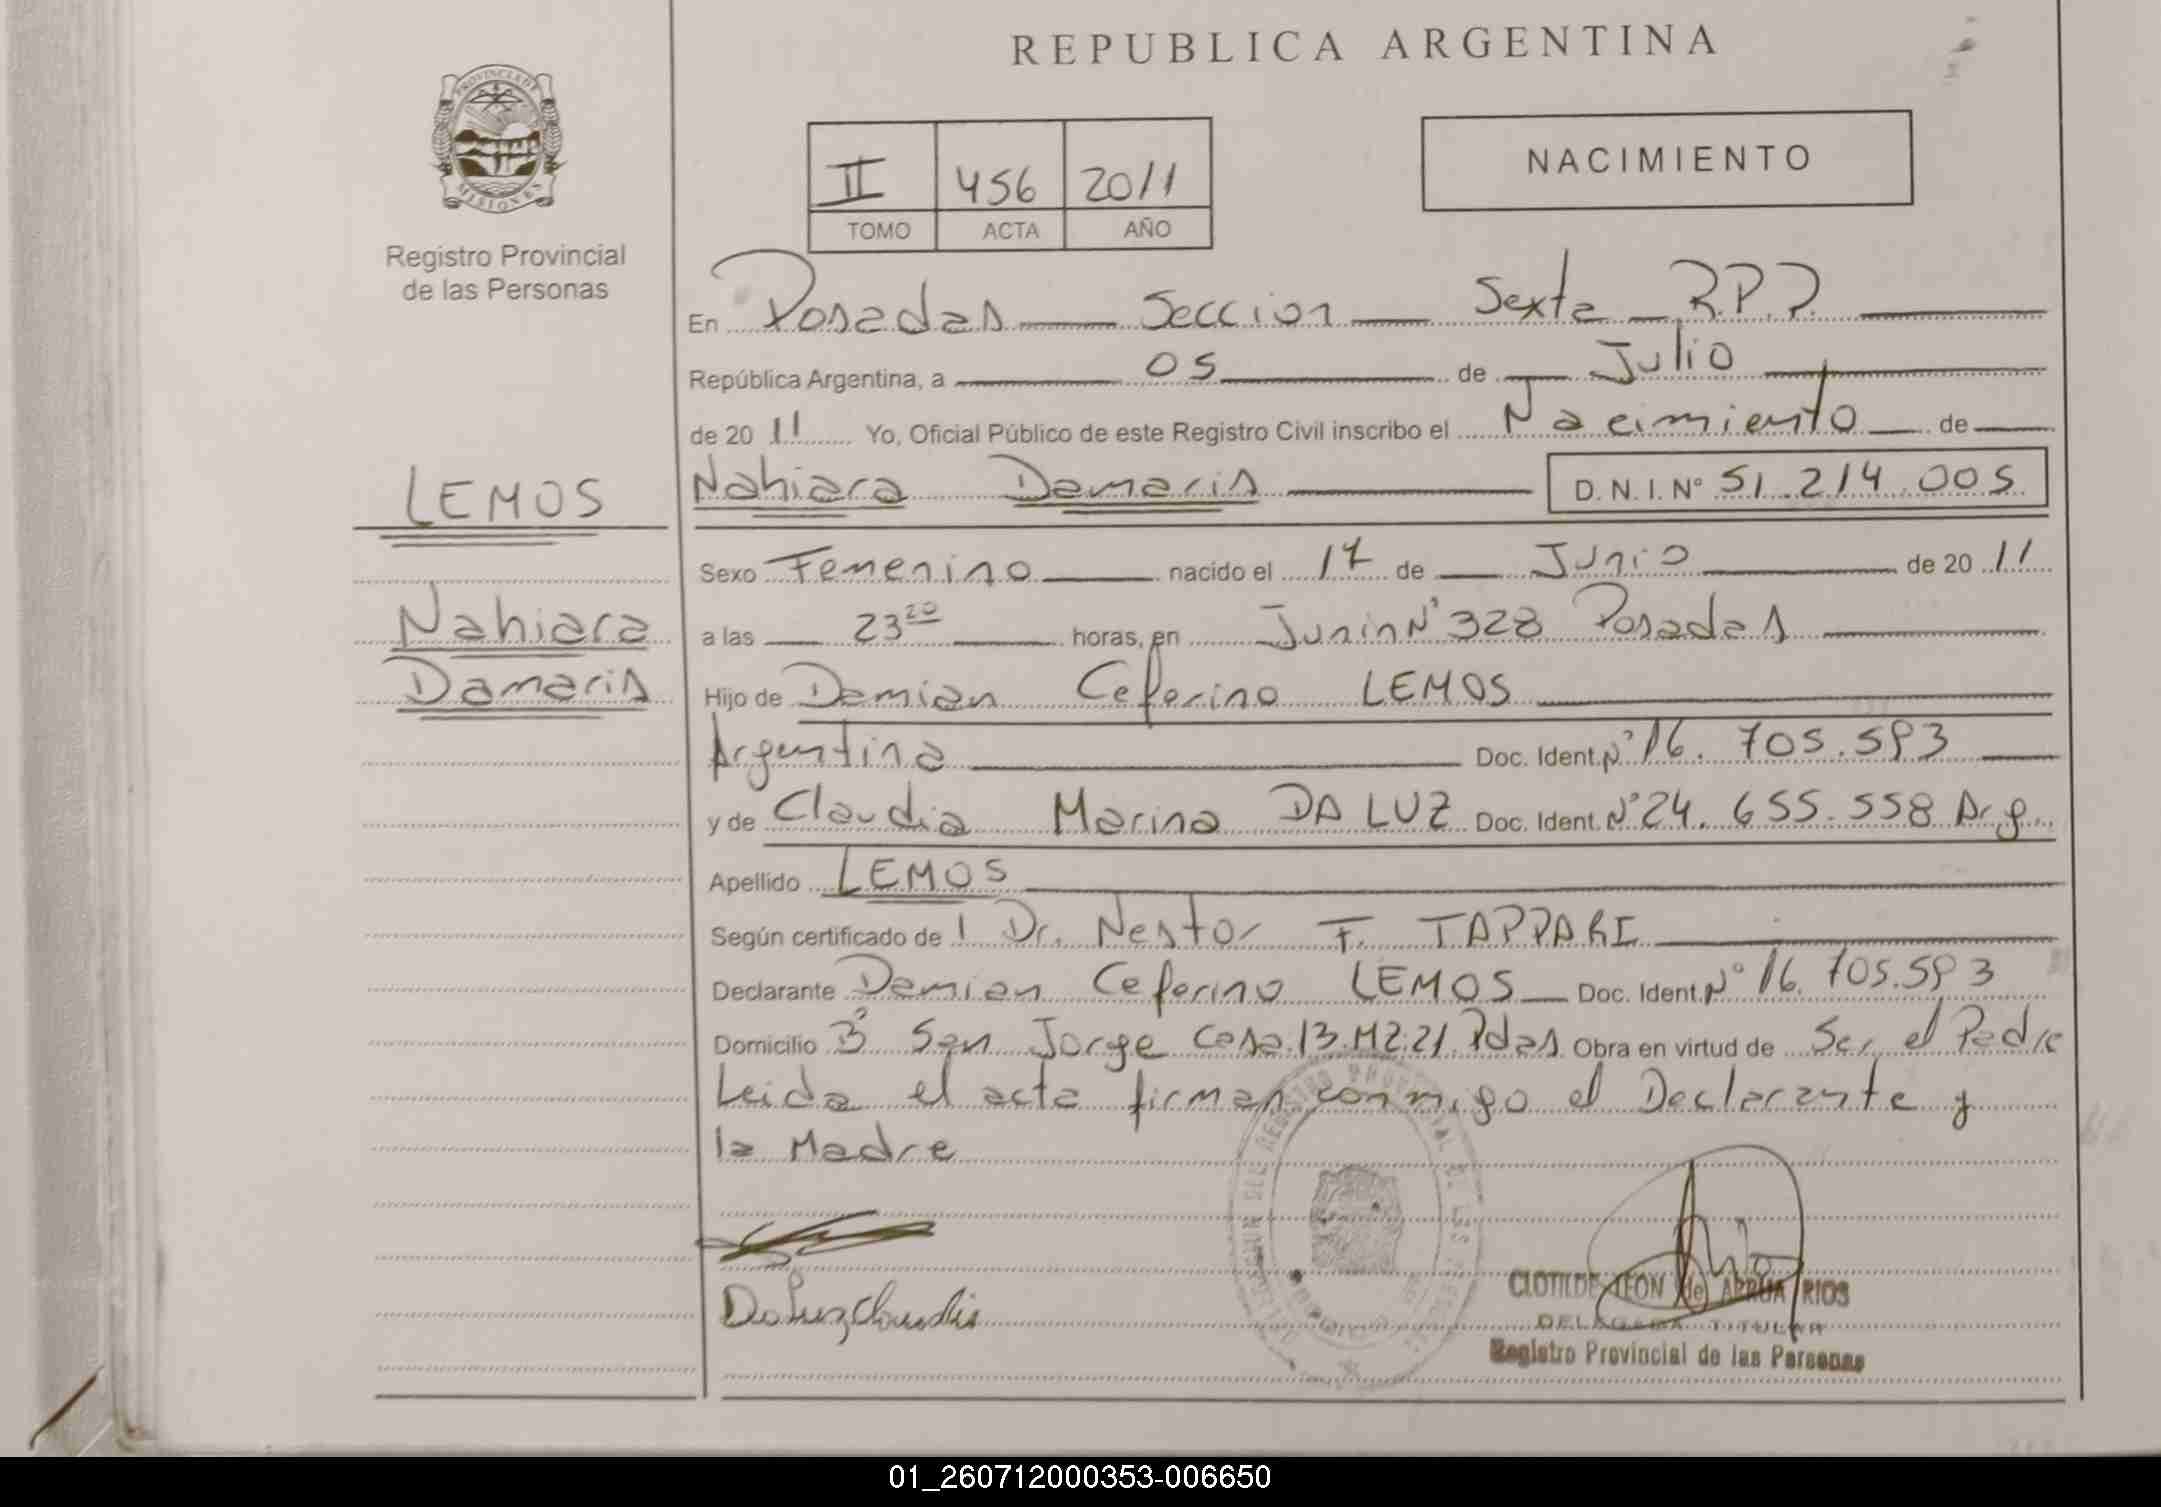 REPUBLICA ARGENTINA
PROVINCIA DE
MISIONES
Registro Provincial
de las Personas
II 456 2011
TOMO ACTA AÑO
NACIMIENTO
En Posadas Seccion Sexta R.P.P.
República Argentina, a 05 de Julio
de 20 11 Yo, Oficial Público de este Registro Civil inscribo el Nacimiento de
LEMOS
Nahiara Damaris D.N.I.Nº 51.214.005
Sexo Femenino nacido el 17 de Junio de 20 11
Nahiara
a las 23 20 horas, en Junin Nº 328 Posadas
Damaris
Hijo de Damian Ceferino LEMOS
Argentina Doc. Ident. Nº 16.705.593
y de Claudia Marina DA LUZ Doc. Ident. Nº 24.655.558 Arg.
Apellido LEMOS
Según certificado de l Dr. Nestor F. TAPPARI
Declarante Damian Ceferino LEMOS Doc. Ident. Nº 16.705.593
Domicilio Bº San Jorge Casa 13 MZ.21 Pdas Obra en virtud de Ser el Padre
Leida el acta firman conmigo el Declarante y
la Madre
Da Luz Claudia
CLOTILDE LEON de ARRUA RIOS
DELEGADA TITULAR
Registro Provincial de las Personas
01_260712000353-006650